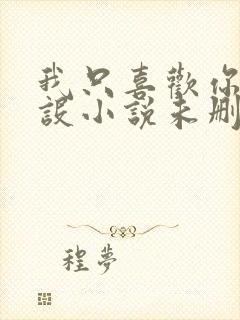 我只喜歡你
設小說未刪
程夢